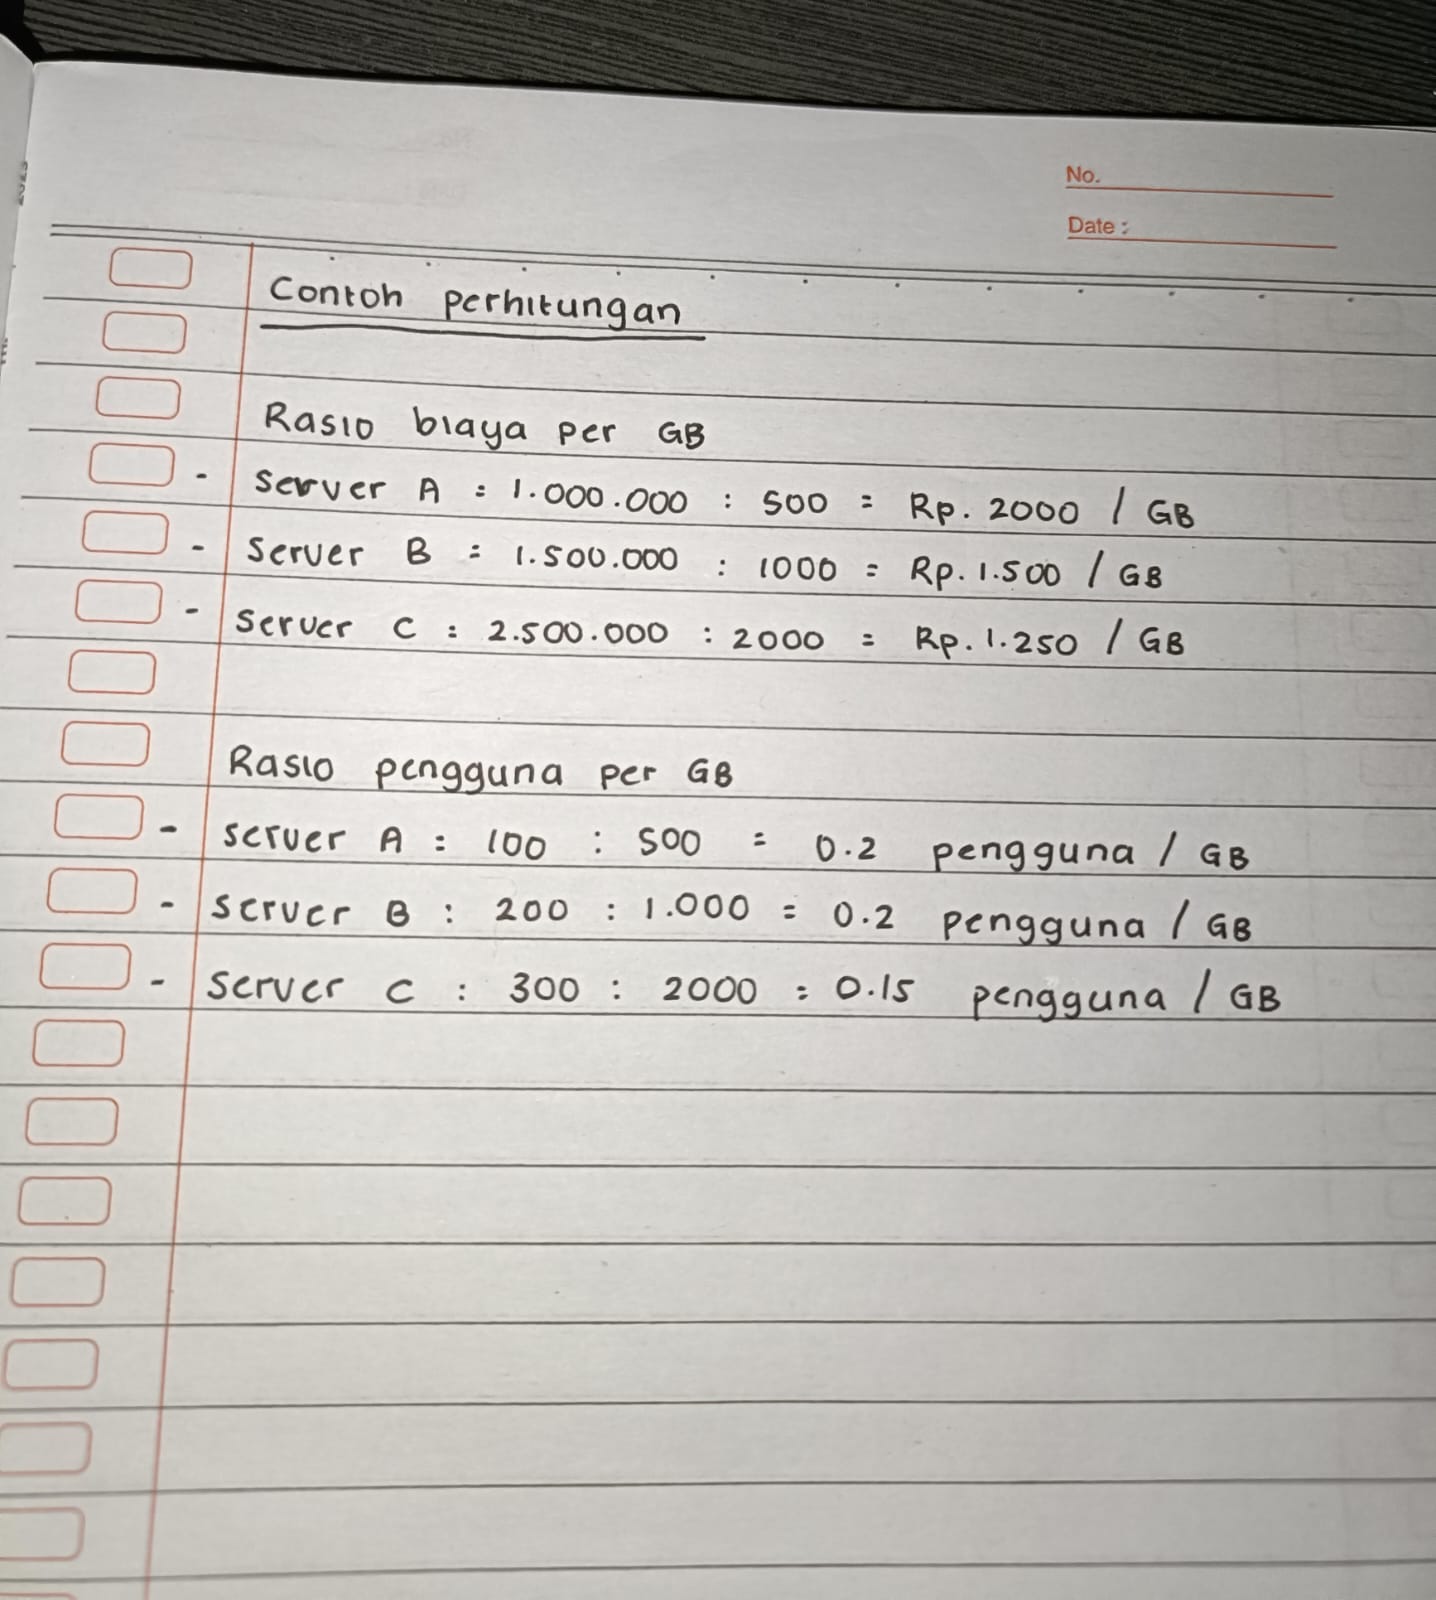 No.
Date :
Contoh perhitungan
Rasio biaya per GB
- Server A = 1.000.000 : 500 = Rp. 2000 / GB
- Server B = 1.500.000 : 1000 = Rp. 1.500 / GB
- Server C = 2.500.000 : 2000 = Rp. 1.250 / GB
Rasio pengguna per GB
- Server A = 100 : 500 = 0.2 pengguna / GB
- Server B : 200 : 1.000 = 0.2 pengguna / GB
- Server C : 300 : 2000 = 0.15 pengguna / GB